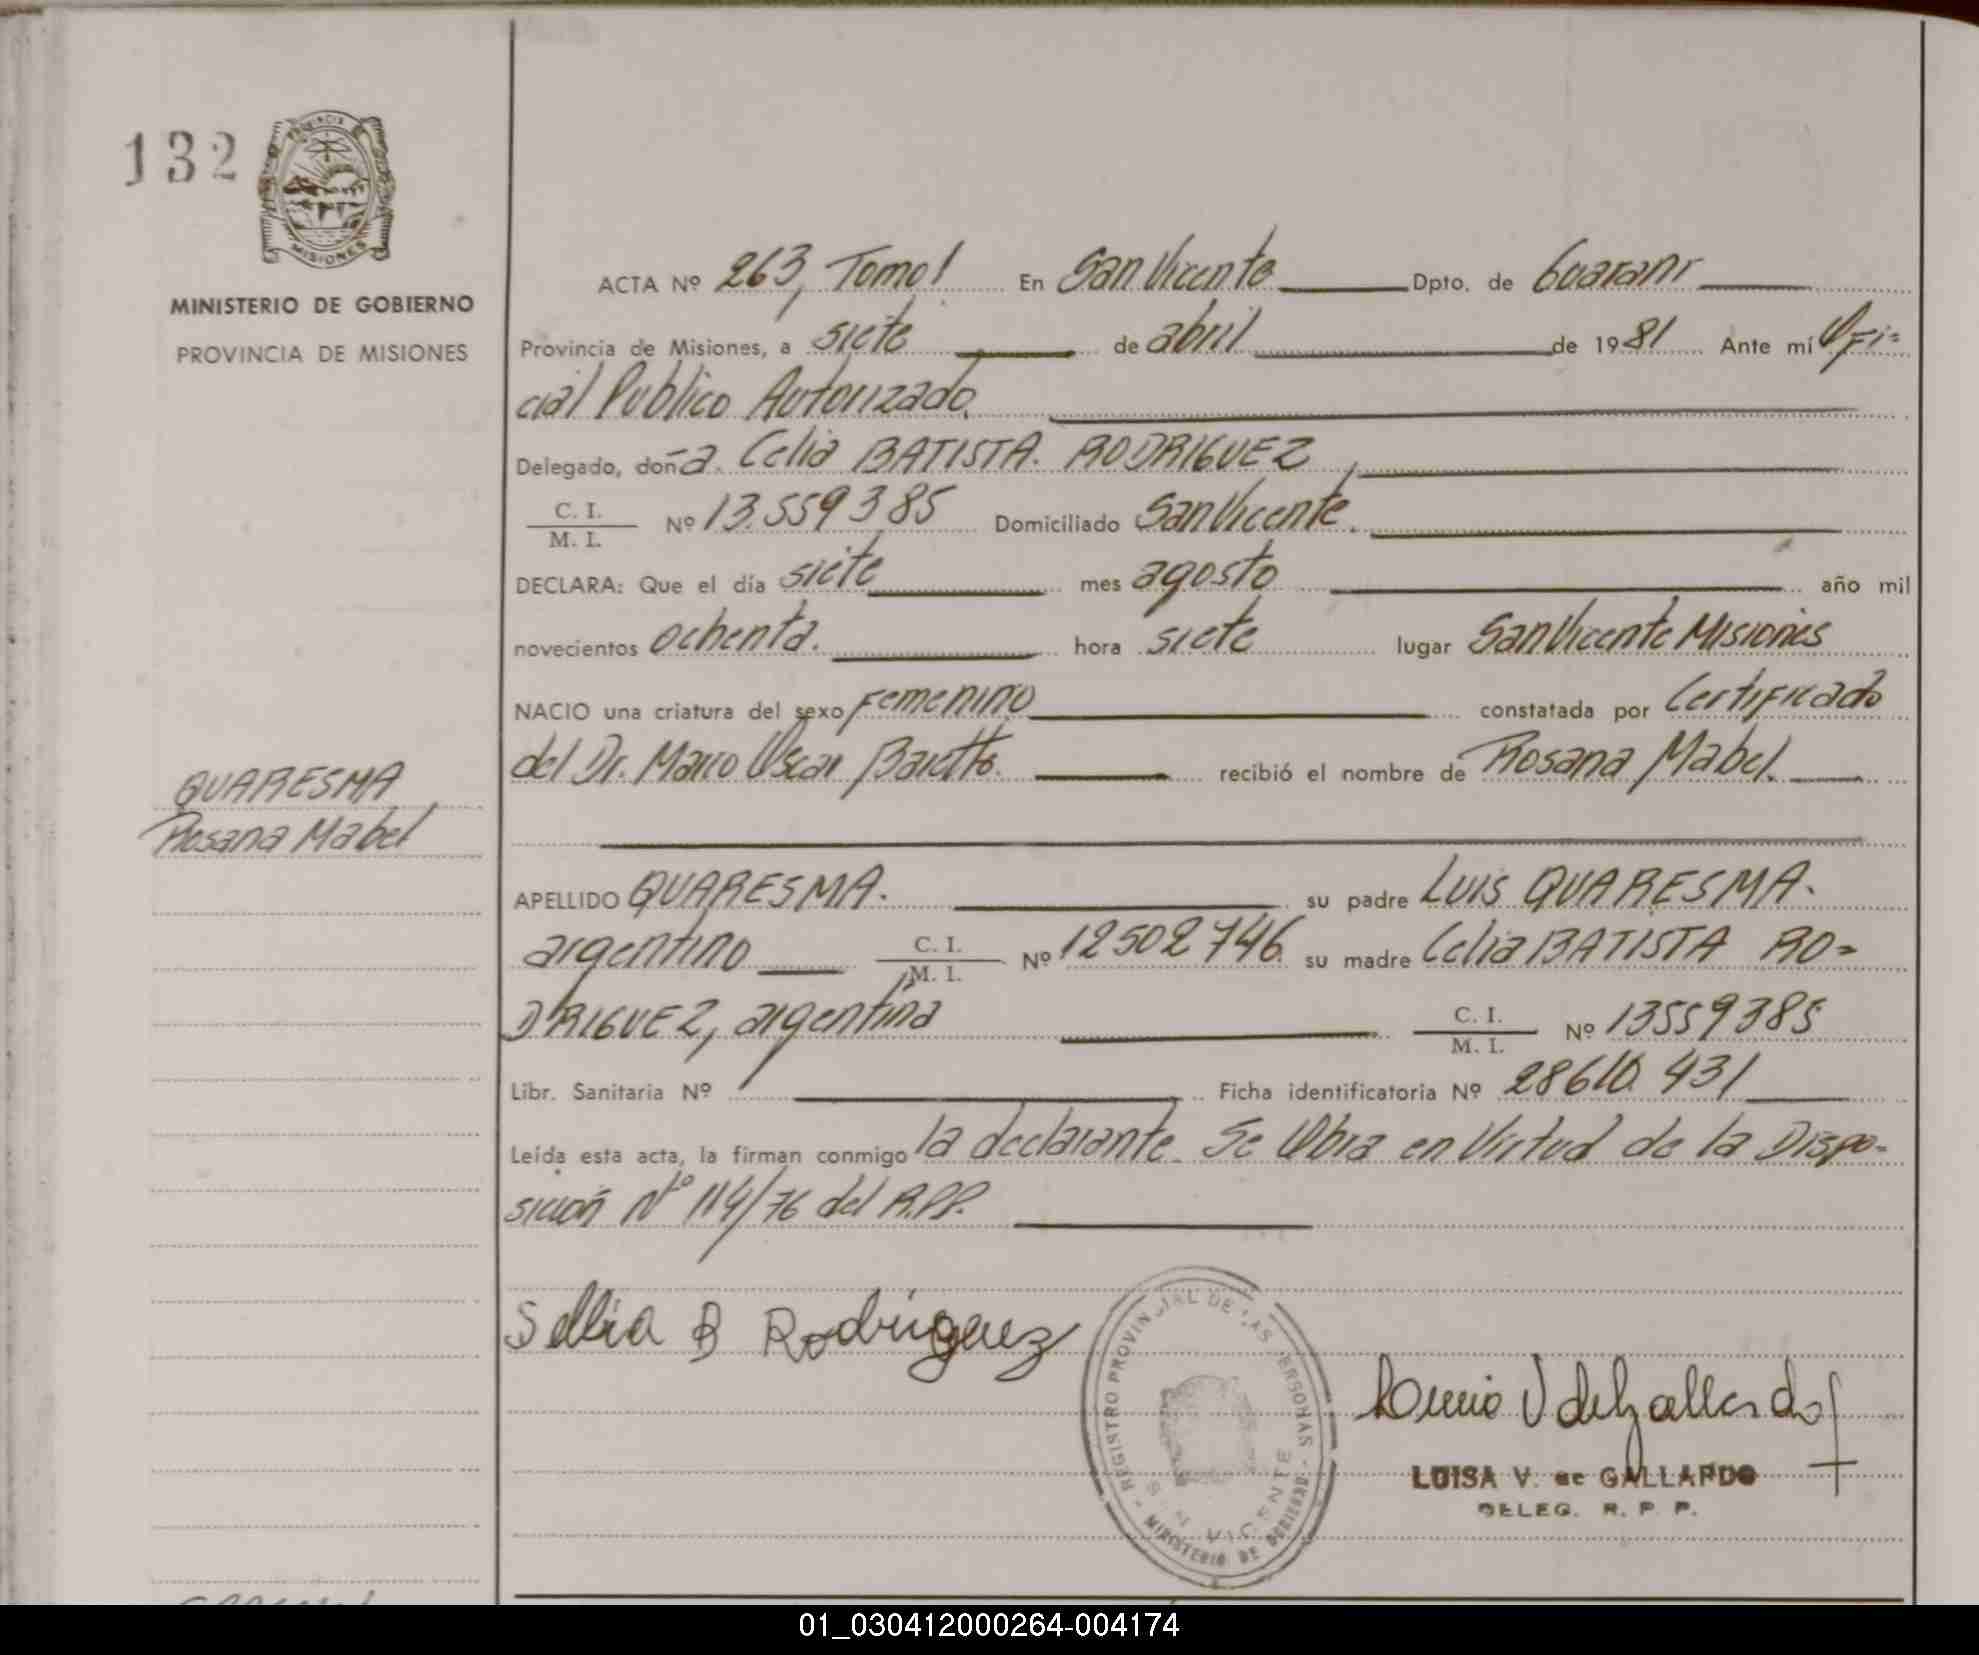 132
PROVINCIA DE
MISIONES
MINISTERIO DE GOBIERNO
PROVINCIA DE MISIONES
ACTA Nº 263, Tomo I En San Vicente Dpto. de Guaraní
Provincia de Misiones, a siete de abril de 1981 Ante mí Ofi=
cial Publico Autorizado,
Delegado, doña Celia BATISTA. RODRIGUEZ,
C. I.
M. I. Nº 13.559385 Domiciliado San Vicente.
DECLARA: Que el día siete mes agosto año mil
novecientos ochenta. hora siete lugar San Vicente Misiones
NACIO una criatura del sexo femenino constatada por Certificado
del Dr. Marco Oscar recibió el nombre de Rosana Mabel.
QUARESMA
Rosana Mabel
APELLIDO QUARESMA. su padre LUIS QUARESMA.
argentino C. I. M. I. Nº 12502746. su madre Celia BATISTA RO=
DRIGUEZ, argentina C. I. M. I. Nº 13559385
Libr. Sanitaria Nº Ficha identificatoria Nº 28610.431
Leída esta acta, la firman conmigo la declarante. Se Obra en Virtud de la Dispo-
sición Nº 114/76 del R.P.P.
Sellia B Rodriguez
REGISTRO PROVINCIAL DE LAS PERSONAS - MINISTERIO DE GOBIERNO -
SAN VICENTE
V de Gallardo
LUISA V. de GALLARDO
DELEG. R. P. P.
01_030412000264-004174